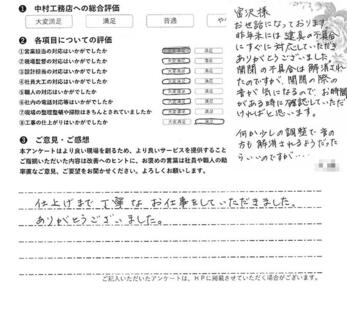 ❶ 中村工務店への総合評価
大変満足 満足 普通 や
❷ 各項目についての評価
①営業担当の対応はいかがでしたか 大変満足 満足
②現場監督の対応はいかがでしたか 大変満足 満足
③設計担当の対応はいかがでしたか 大変満足 満足
④社員大工の対応はいかがでしたか 大変満足 満足
⑤職人の対応はいかがでしたか 大変満足 満足
⑥社内の電話対応等はいかがでしたか 大変満足 満足
⑦現場の整理整頓や掃除はきちんとされていましたか 大変満足 満足
⑧工事の仕上がりはいかがでしたか 大変満足 満足
❸ ご意見・ご感想
本アンケートはより良い現場を創るため、より良いサービスを提供すること
ご指摘いただいた内容は改善へのヒントに、お褒めの言葉は社員や職人の励
率直なご意見、ご要望をお聞かせください。よろしくお願いします。
仕上げまで丁寧なお仕事をしていただきました。
ありがとうございました。
ご記入いただいたアンケートは、HPに掲載させていただく場合がございます。
宮沢様
お世話になっております。
昨年末には建具の不具合
にすぐに対応していただき
ありがとうございました。
開閉の不具合は解消され
たのですが、開閉の際の
音が気になるので、お時間
がある時に確認していただ
ければと思います。
何か少しの調整で音の
方も解消されるようだった
らいいのですが…